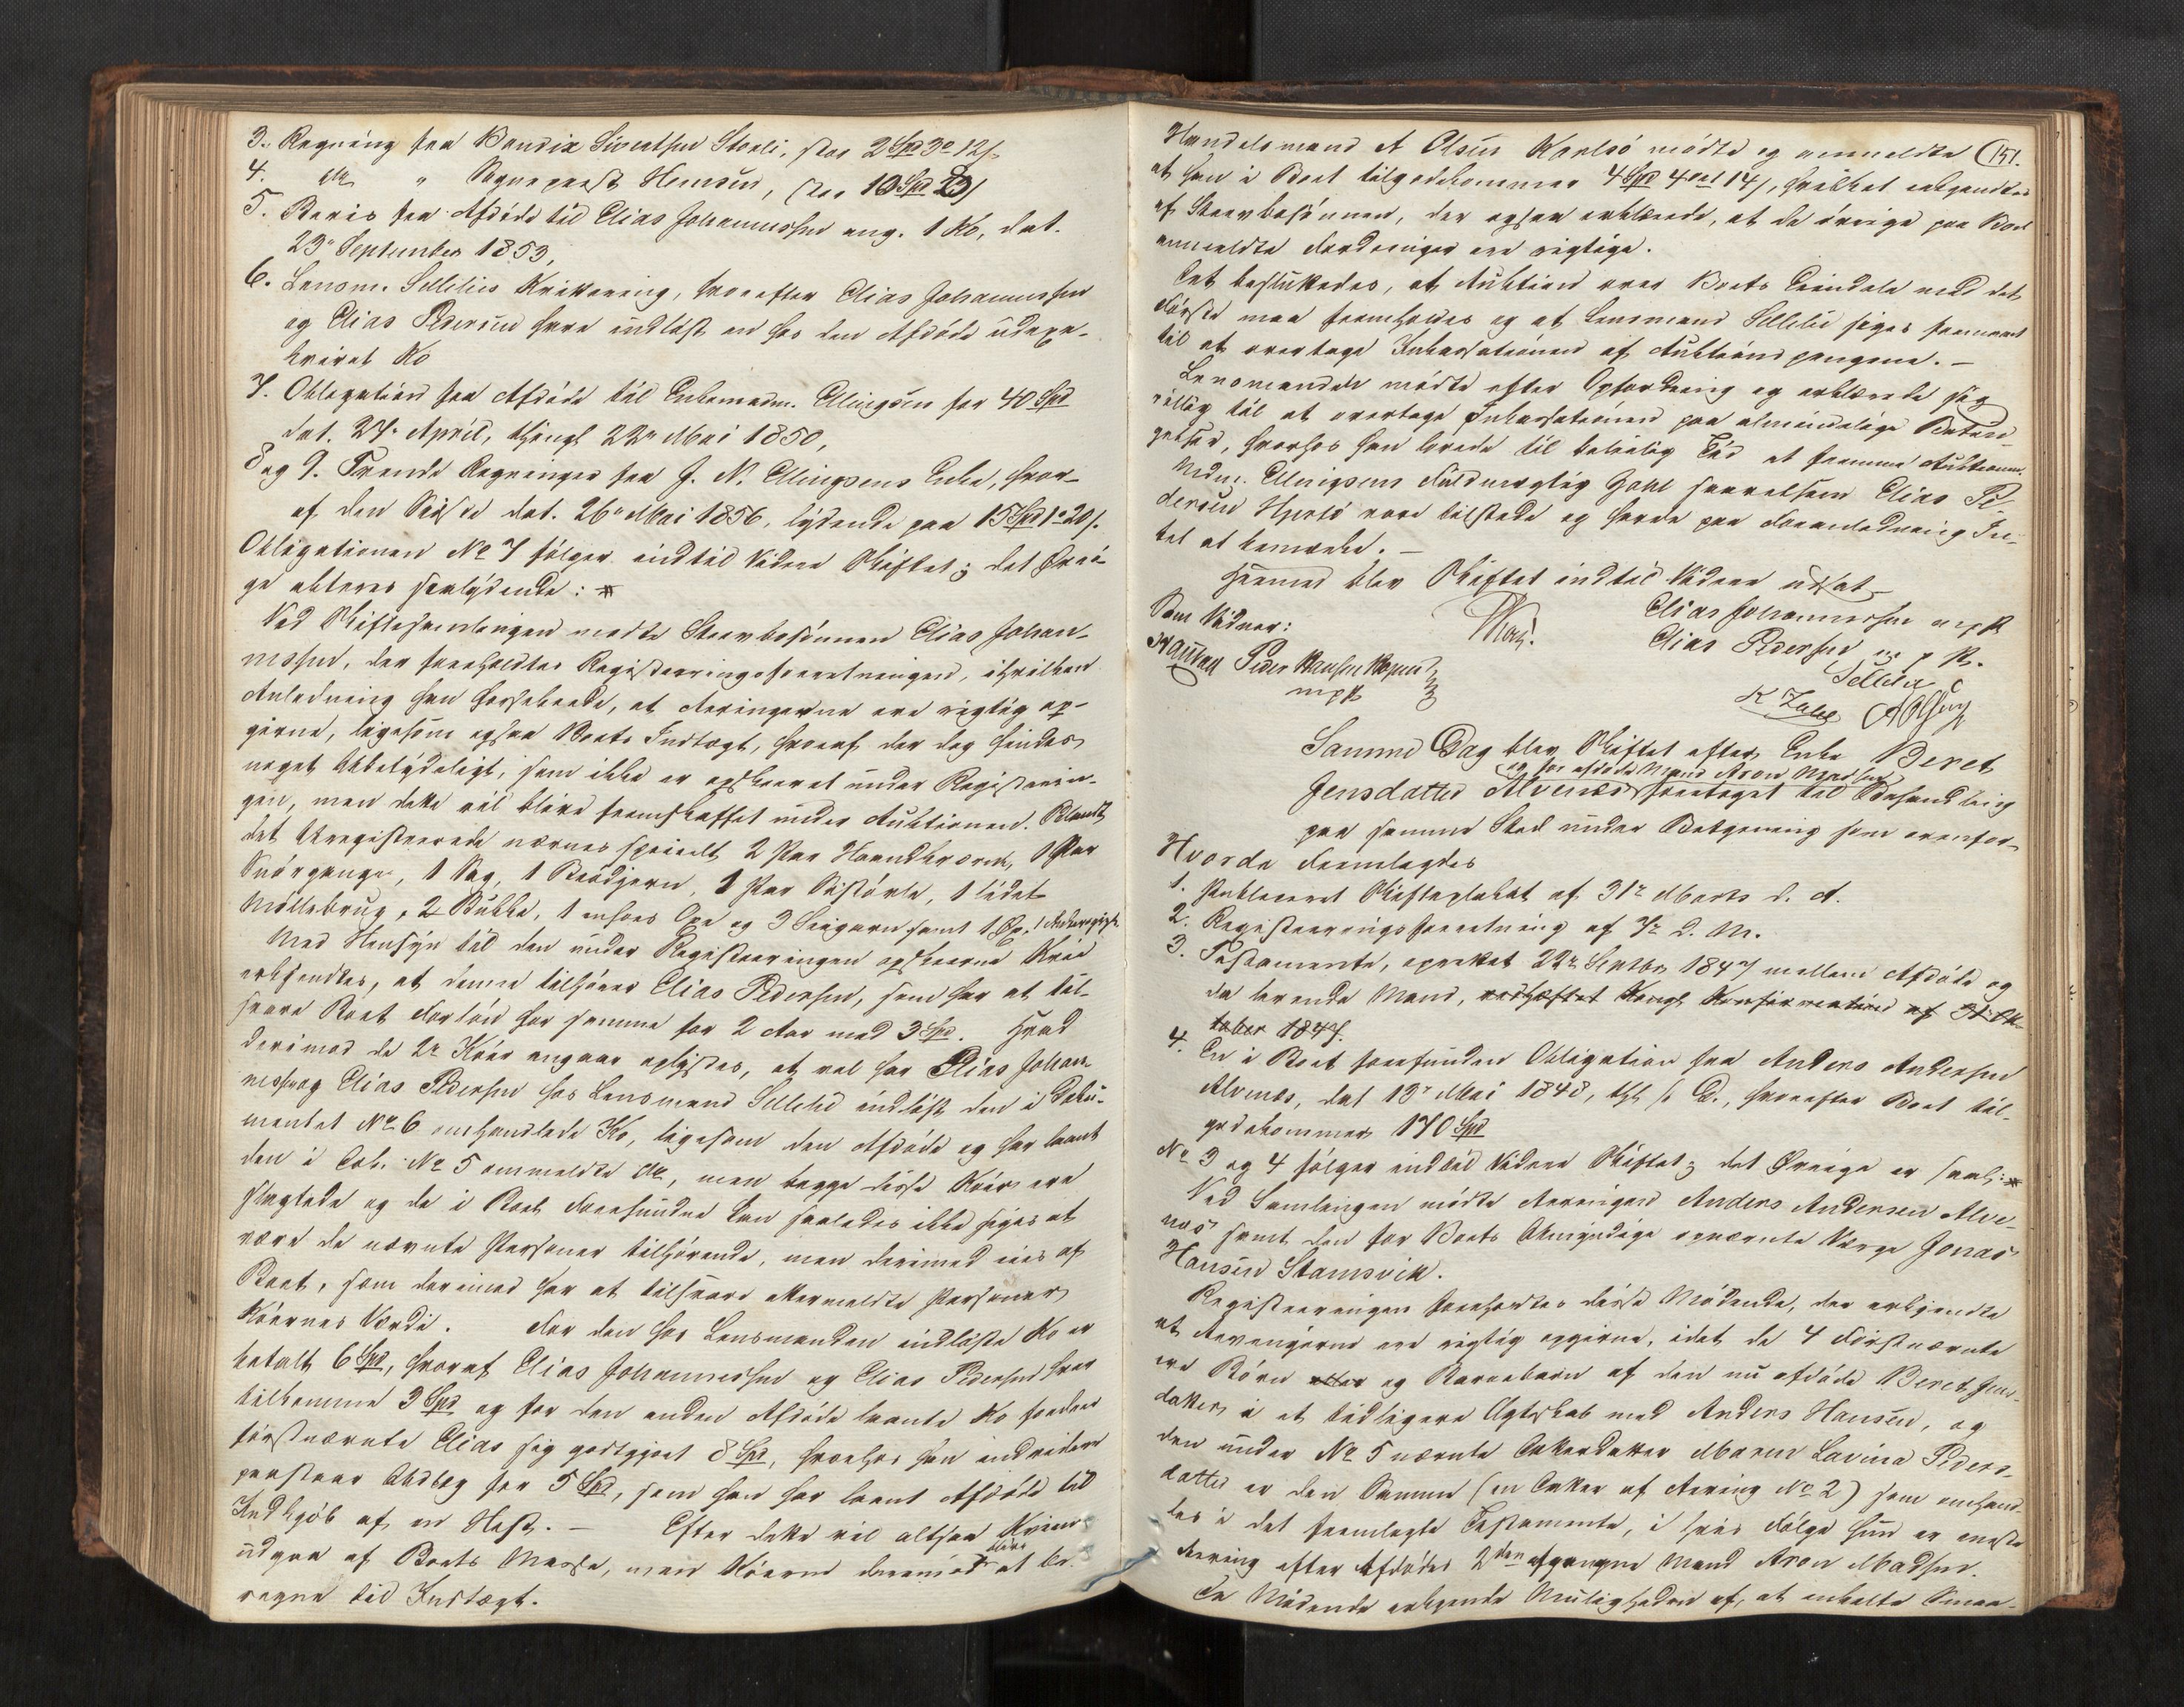 3. Regning fra Bendix Sivertsen Storli, stor 2 Spd 3 o 12 s.
4. do " Sogneprest Hemsen, stor 10 Spd
5. Beviis fra Afdøde til Elias Johannessen ang. 1 Ko, dat.
23de September 1853,
6. Lensm. Sellelies Kvittering, hvorefter Elias Johannessen
og Elias Pedersen have indløst en hos den Afdøde udexe-
qveret Ko
7. Obligation fra Afdøde til Enkemadm. Ellingsen for 40 Spd
dat. 27de April, thingl. 22de Mai 1850,
8 og 9. Tvende Regninger fra J. N. Ellingsens Enke, hvor-
af den Sidste dat. 26de Mai 1856, lydende paa 15 Spd 1 o 20 s.
Obligationen No 7 følger indtil Videre Skiftet; det Øvri-
ge akteres saalydende: *
Ved Skiftesamlingen mødte Stervbosønnen Elias Johan-
nessen, der foreholdtes Registreringsforretningen, i hvilken
Anledning han forklarede, at Arvingerne ere rigtig op-
givne, ligesom ogsaa Boets Indtægt, hvoraf der dog findes
noget Ubetydeligt, som ikke er opskrevet under Registrerin-
gen, men dette vil blive fremskaffet under Auktionen. Blandt
det Uregistrerede nævnes specielt 2 Par Haandkværn, 1 Par
1 Sag, 1 Brødjern, 1 Par Søstøvle, 1 lidet
Møllebrug, 2 Bukke, 1 Øxe og 3 Seigarn samt 1
Med Hensyn til den under Registreringen opskrevne Kvie
erkjendtes, at denne tilhører Elias Pedersen, som har at til-
svare Boet Foerløn for samme for 2 Aar med 3 Spd. Hvad
derimod de 2de Køer angaar oplystes, at vel har Elias Johan-
nessen og Elias Pedersen hos Lensmand Sellelie indløst den i Doku-
mentet No 6 omhandlede Ko, ligesom den Afdøde og har laant
den i Dok. No 5 ommeldte do, men begge disse Køer ere
slagtede og de i Boet Forefundne kan saaledes ikke siges at
være de nævnte Personer tilhørende, men derimod eies af
Boet, som derimod har at tilsvare ommeldte Personer
Køernes Værdi. For den hos Lensmanden indløste Ko er
betalt 6 Spd, hvoraf Elias Johannessen og Elias Pedersen hver
tilkomme 3 Spd og for den anden Afdøde laante Ko fordrer
førstnævnte Elias sig godtgjort 8 Spd, hvorhos han endvidere
paastaar Udlæg for 5 Spd, som han har laant Afdøde til
Indkjøb af en Hest. — Efter dette vil altsaa Kvien
udgaa af Boets Masse, men Køerne derimod blive at be-
regne til Indtægt.
151.
Handelsmand A Olsen Karlsø mødte og anmeldte
at han i Boet tilgodekommer 4 Spd 4 ort 14 s, hvilket erkjendtes
af Stervbosønnen, der ogsaa erklærede, at de øvrige paa Boet
anmeldte Fordringer ere rigtige.
Det besluttedes, at Auktion over Boets Eiendele med det
Første maa fremholdes og at Lensmand Sellelie siges fremmet
til at overtage Inkassationen af Auktionspengene. —
Lensmanden mødte efter Opfordring og erklærede sig
villig til at overtage Inkassationen paa almindelige Betin-
gelser, hvorhos han lovede til beleilig Tid at fremme Auktionen.
Mdm. Ellingsens Fuldmægtig Zahl saavelsom Elias Pe-
dersen Hjertø vare tilstede og havde paa Foranledning In-
tet at bemærke. —
Hermed blev Skiftet indtil Videre udsat.
Som Vidner:
Peder Hansen
mpp
Elias Johannessen m p P
Elias Pedersen m. p. P.
Sellelie
K Zahl A Olsen
Samme Dag blev Skiftet efter Enke Beret
og før afdøde Mand Aron Madsen
Jensdatter Alvenes foretaget til Behandling
paa samme Sted under Betjening som ovenfor.
Hvorda Fremlagdes
1. Publiceret Skifteplakat af 31te Marts d. A.
2. Registreringsforretning af 7de d. M.
3. Testamente, oprettet 22de Septbr 1847 mellem Afdøde og
da levende Mand, vedhæftet Kongl. Konfirmation af 31te Ok-
tober 1847.
4. En i Boet forefunden Obligation fra Anders Andersen
Alvenes, dat 18de Mai 1848, thgl. s. D., hvorefter Boet til-
godekommer 170 Spd
No 3 og 4 følger indtil Videre Skiftet; det Øvrige er saal: *
Ved Samlingen mødte Arvingen Anders Andersen Alve-
nes samt den for Boets Umyndige opnævnte Værge Jonas
Hansen Stamsvik.
Registreringen foreholdtes disse Mødende, der erkjendte
at Arvingerne ere rigtig opgivne, idet de 4 Førstnævnte
ere Børn eller og Barnebørn af den nu afdøde Beret Jens-
datter i et tidligere Ægteskab med Anders Hansen, og
den under No 5 nævnte Datterdatter Maren Lavina Peders-
datter er den Samme (en Datter af Arving No 2) som omhand-
les i det fremlagte Testamente, i hvis Følge hun er eneste
Arving efter Afdødes 2den afgangne Mand Aron Madsen.
De Mødende erkjendte Muligheden af, at enkelte Smaa-